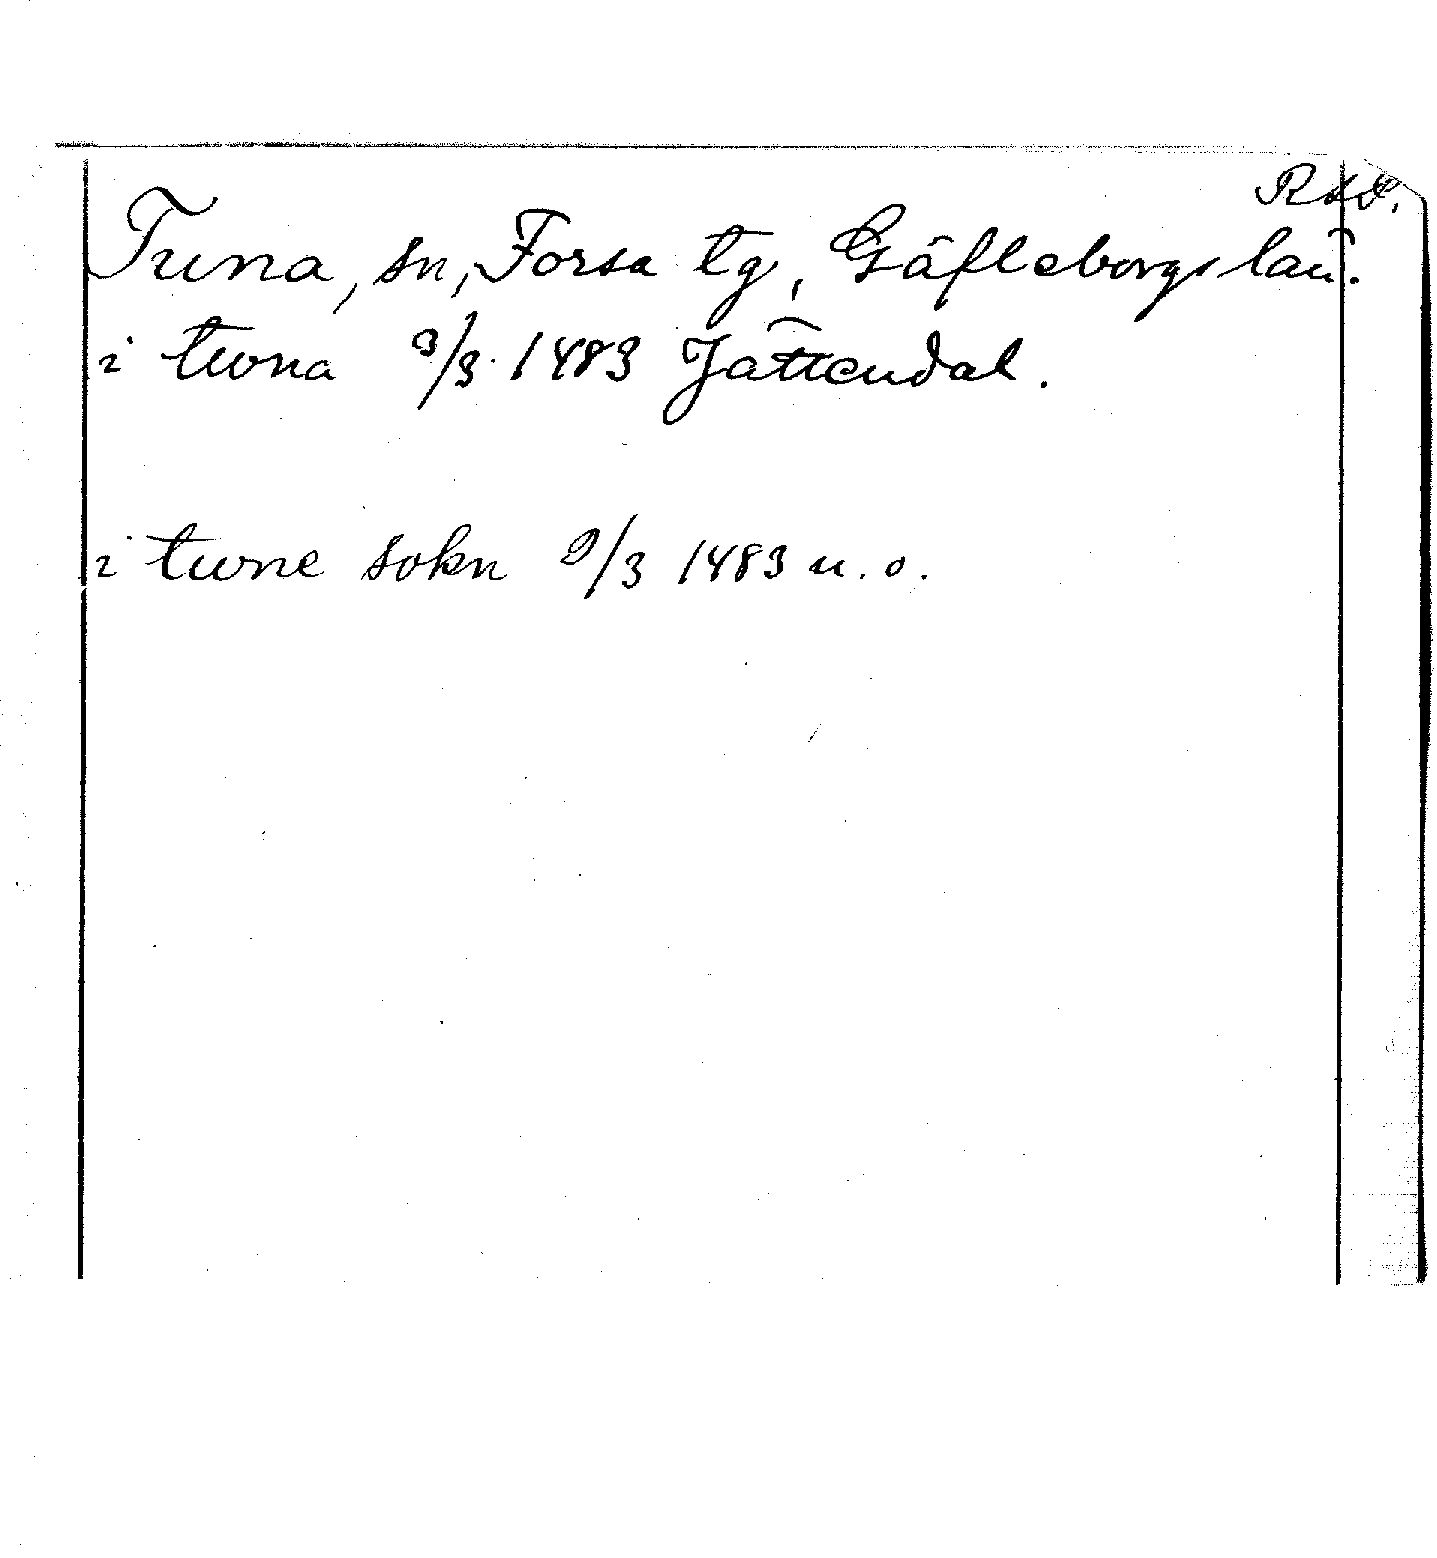 Tuna, sn, Forsa tg, Gäfleborgs län.
i twna 3/3 1483 Jättendal.
i twne sokn 9/3 1483 u. o.